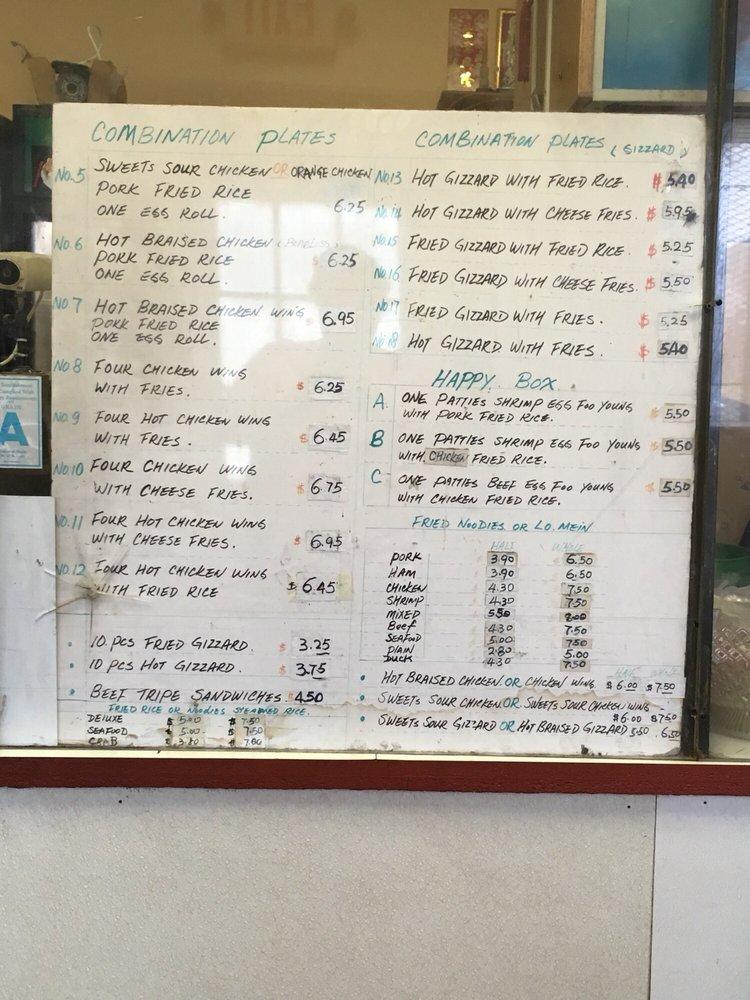 COMBINATION PLATES
No.5 SWEETS SOUR CHICKEN OR ORANGE CHICKEN
PORK FRIED RICE
ONE EGG ROLL. 6.25
No.6 HOT BRAISED CHICKEN (BONELESS)
PORK FRIED RICE $ 6.25
ONE EGG ROLL.
No.7 HOT BRAISED CHICKEN WING
PORK FRIED RICE $ 6.95
ONE EGG ROLL.
No 8 FOUR CHICKEN WING
WITH FRIES. $ 6.25
No.9 FOUR HOT CHICKEN WING
WITH FRIES. $ 6.45
No.10 FOUR CHICKEN WING
WITH CHEESE FRIES. $ 6.75
No.11 FOUR HOT CHICKEN WING
WITH CHEESE FRIES. $ 6.95
No.12 FOUR HOT CHICKEN WING
WITH FRIED RICE $ 6.45
• 10 PCS FRIED GIZZARD. $ 3.25
• 10 PCS HOT GIZZARD. $ 3.75
• BEEF TRIPE SANDWICHES $ 4.50
FRIED RICE OR NOODIES STEAMED RICE.
DELUXE $ 5.00 $ 7.50
SEAFOOD $ 5.00 $ 7.50
CRAB
COMBINATION PLATES (GIZZARD)
No.13 HOT GIZZARD WITH FRIED RICE. $ 5.40
No.14 HOT GIZZARD WITH CHEESE FRIES. $ 5.95
No.15 FRIED GIZZARD WITH FRIED RICE. $ 5.25
No.16 FRIED GIZZARD WITH CHEESE FRIES. $ 5.50
No.17 FRIED GIZZARD WITH FRIES. $ 5.25
No.18 HOT GIZZARD WITH FRIES. $ 5.40
HAPPY BOX
A. ONE PATTIES SHRIMP EGG FOO YOUNG
WITH PORK FRIED RICE. $ 5.50
B ONE PATTIES SHRIMP EGG FOO YOUNG
WITH CHICKEN FRIED RICE. $ 5.50
C ONE PATTIES BEEF EGG FOO YOUNG
WITH CHICKEN FRIED RICE. $ 5.50
FRIED NOODIES OR LO. MEIN
HALF WHOLE
PORK 3.90 6.50
HAM 3.90 6.50
CHICKEN 4.30 7.50
SHRIMP 4.30 7.50
MIXED 5.50 8.00
Beef 4.30 7.50
SEAFOOD 5.00 7.50
PLAIN 2.80 5.00
DUCK 4.30 7.50
HALF WHOLE
• HOT BRAISED CHICKEN OR CHICKEN WING $ 6.00 $ 7.50
• SWEETS SOUR CHICKEN OR SWEETS SOUR CHICKEN WING
$ 6.00 $ 7.50
• SWEETS SOUR GIZZARD OR HOT BRAISED GIZZARD 5.50 6.50
A